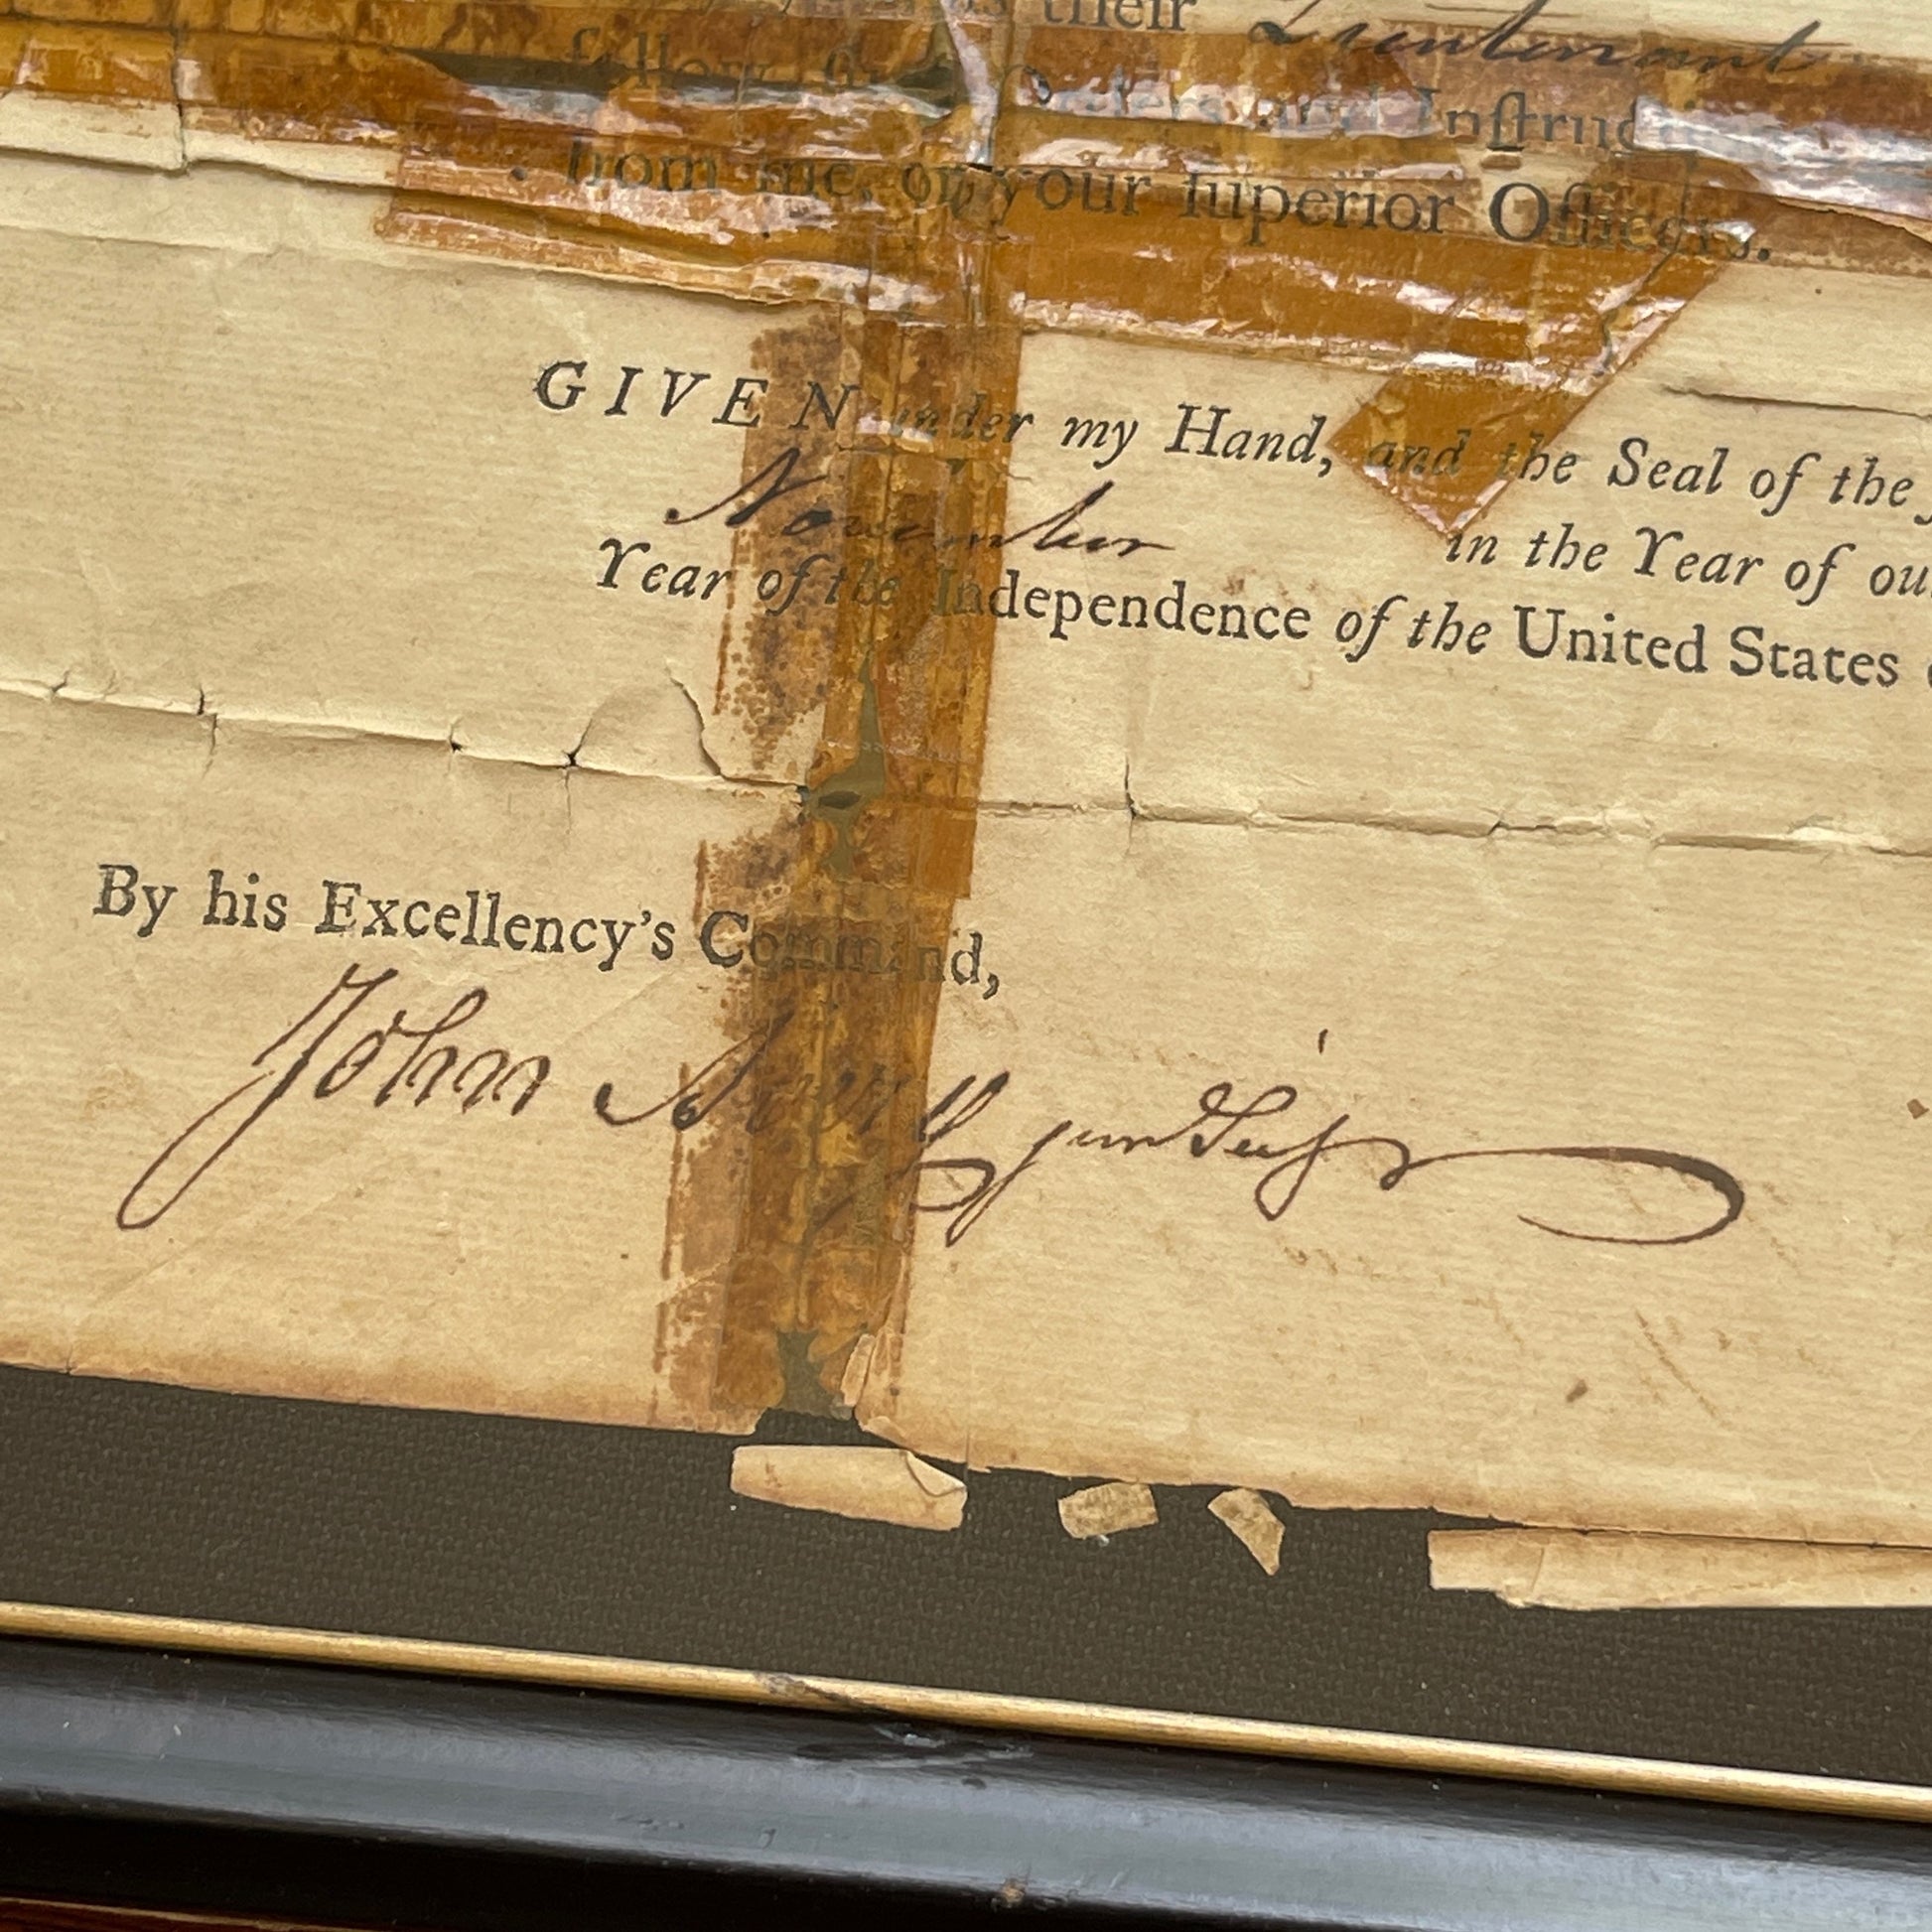 their Lieutenant
follow Orders and Inſtruc
from me, or your ſuperior Officers.
GIVEN under my Hand, and the Seal of the
November in the Year of ou
Year of the Independence of the United States
By his Excellency's Command,
John Avery junr Secy